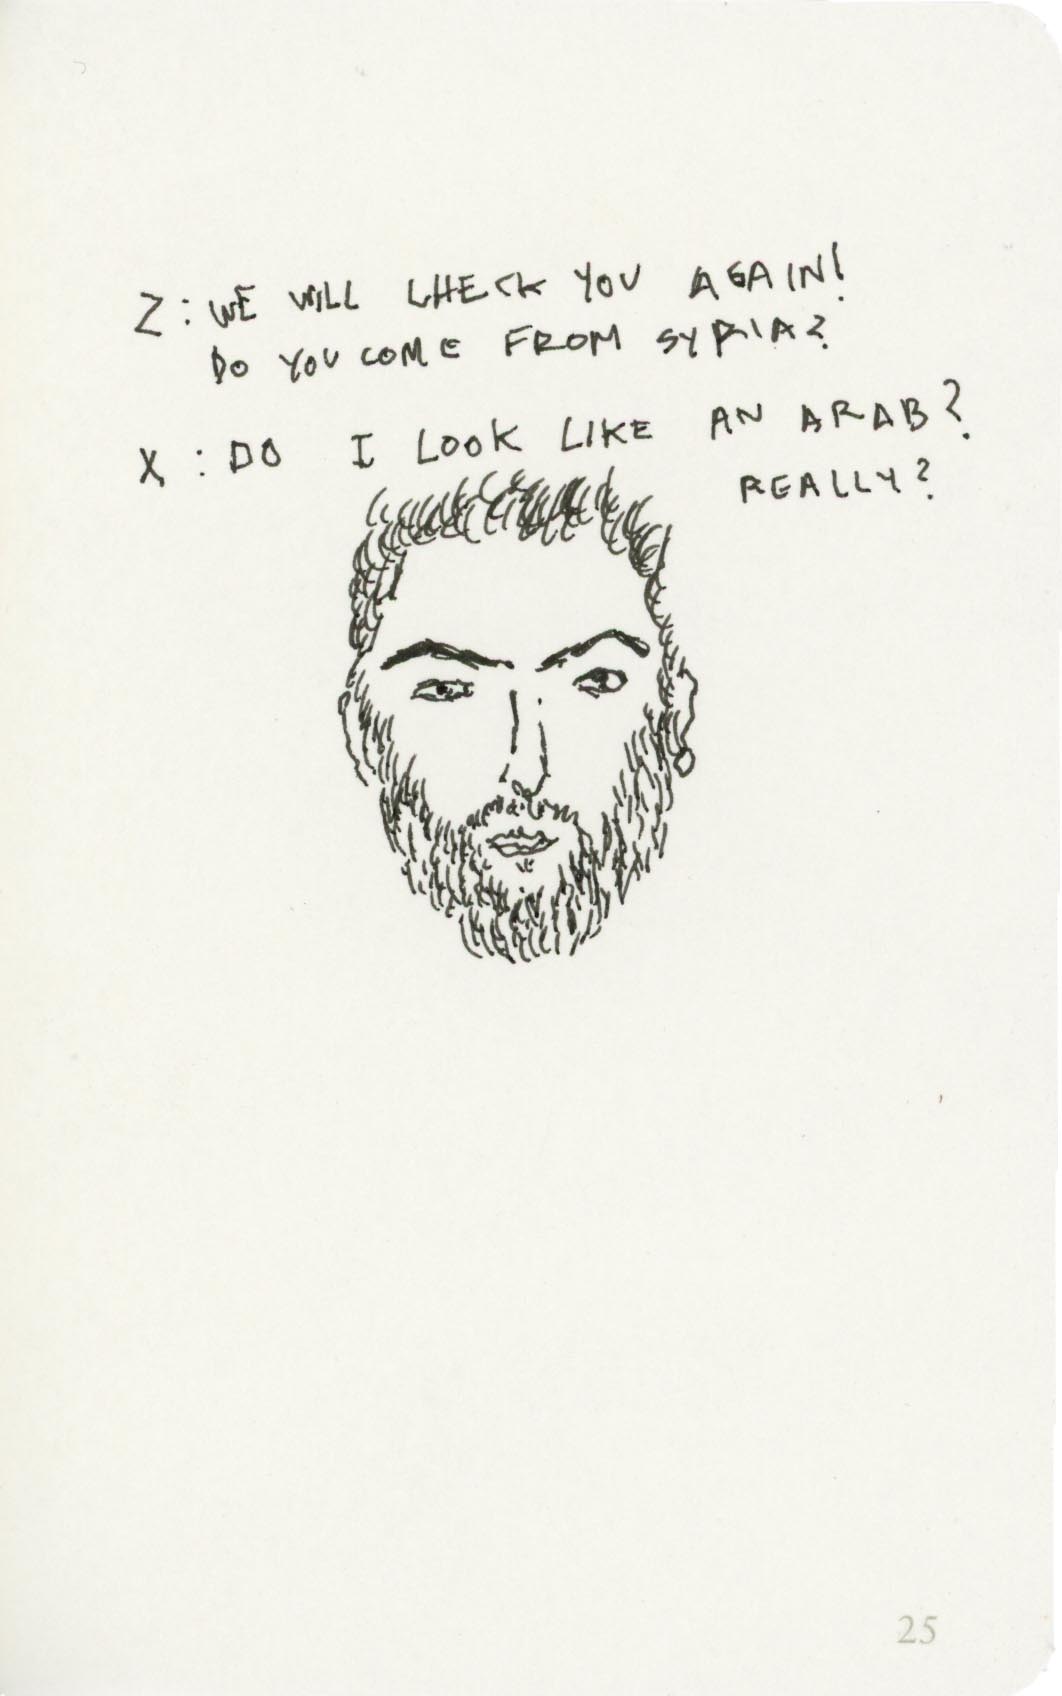 Z: WE WILL CHECK YOU AGAIN!
DO YOU COME FROM SYRIA?
X: DO I LOOK LIKE AN ARAB?
REALLY?
25